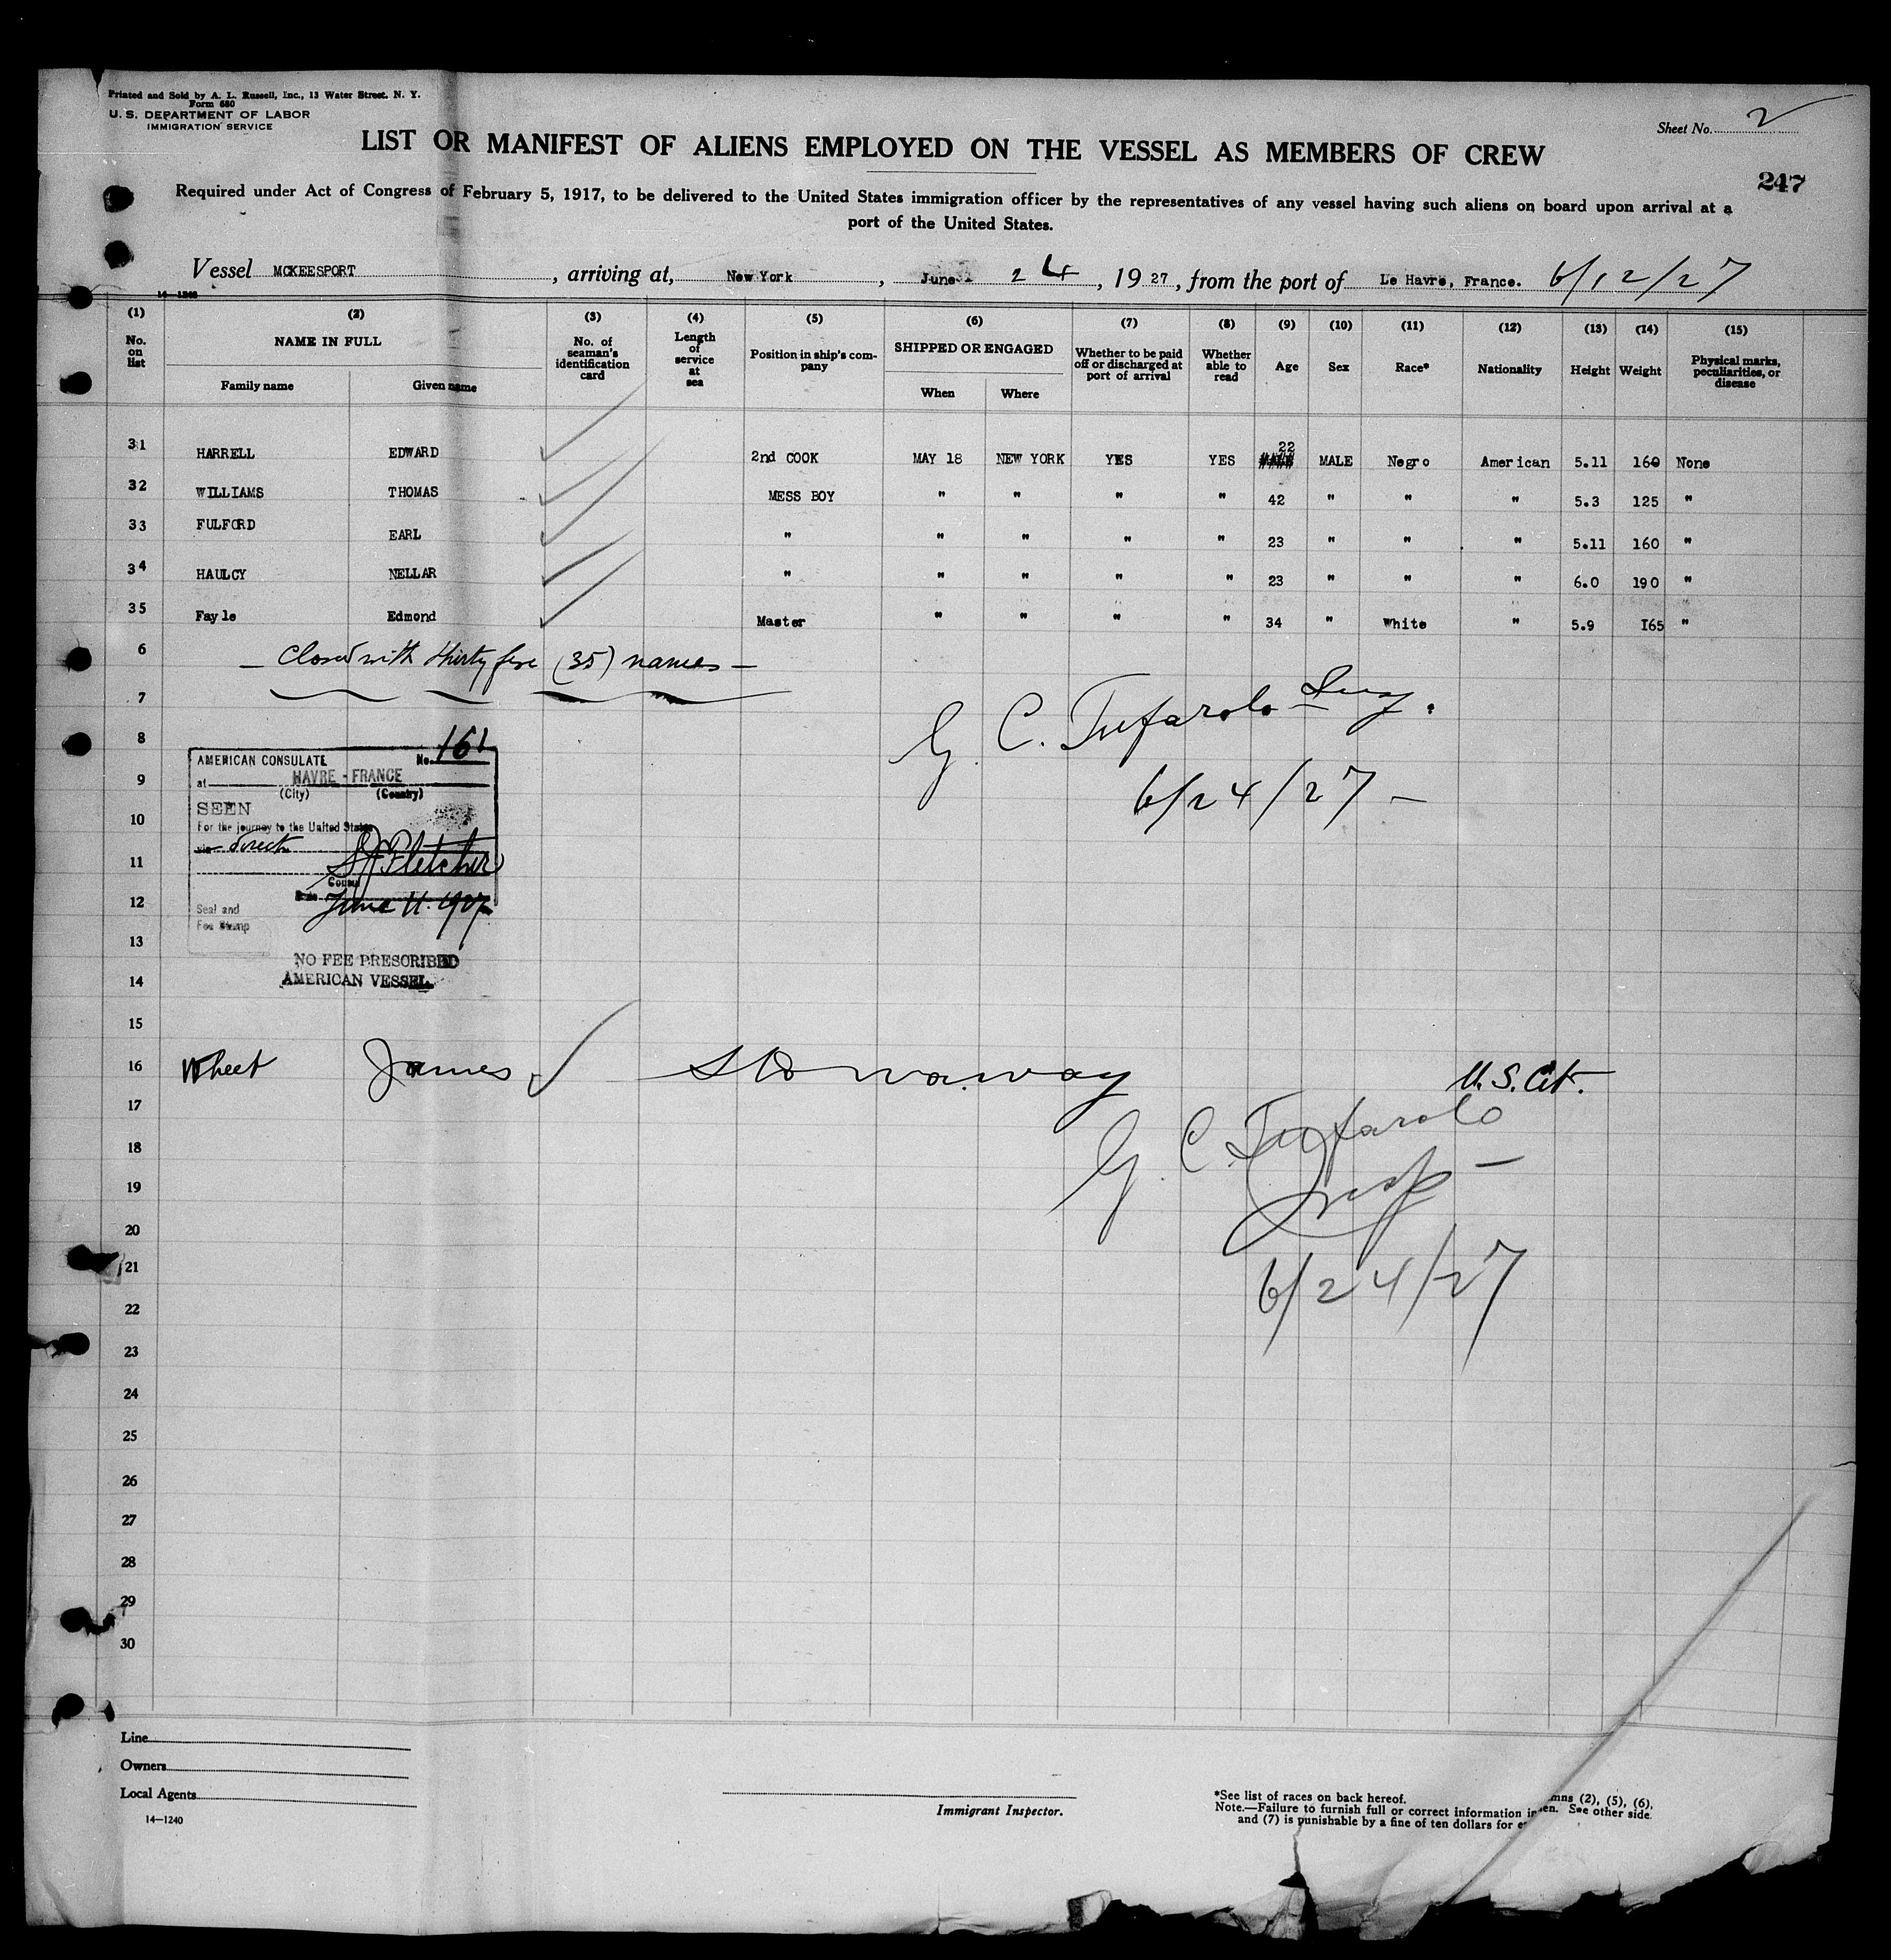 Printed and Sold by A. L. Russell, Inc., 13 Water Street. N. Y.
Form 680
U. S. DEPARTMENT OF LABOR
IMMIGRATION SERVICE
Sheet No. 2
LIST OR MANIFEST OF ALIENS EMPLOYED ON THE VESSEL AS MEMBERS OF CREW
247
Required under Act of Congress of February 5, 1917, to be delivered to the United States immigration officer by the representatives of any vessel having such aliens on board upon arrival at a
port of the United States.
Vessel MCKEESPORT, arriving at, New York, June 24, 1927, from the port of Le Havre, France. 6/12/27
14—1240
(1) (2) (3) (4) (5) (6) (7) (8) (9) (10) (11) (12) (13) (14) (15)
No. on list
NAME IN FULL
Family name Given name
No. of seaman's identification card
Length of service at sea
Position in ship's company
SHIPPED OR ENGAGED
When Where
Whether to be paid off or discharged at port of arrival
Whether able to read
Age
Sex
Race*
Nationality
Height
Weight
Physical marks, peculiarities, or disease
31 HARRELL EDWARD 2nd COOK MAY 18 NEW YORK YES YES 22 MALE Negro American 5.11 160 None
32 WILLIAMS THOMAS MESS BOY " " " " 42 " " " 5.3 125 "
33 FULFORD EARL " " " " " 23 " " " 5.11 160 "
34 HAULCY NELLAR " " " " " 23 " " " 6.0 190 "
35 Fayle Edmond Master " " " " 34 " White " 5.9 165 "
6 — Closed with thirty five (35) names —
7
G. C. Tufarolo
8
6/24/27 —
AMERICAN CONSULATE No. 161
at HAVRE - FRANCE
(City) (Country)
9
SEEN
10
For the journey to the United States
via direct
11
Fletcher
Consul
12
Date June 11. 1927
Seal and
Fee Stamp
13
NO FEE PRESCRIBED
14
AMERICAN VESSEL.
15
16 Wheet James Stowaway U. S. Cit.
17
G. C. Tufarolo
18
Insp —
19
20
6/24/27
21
22
23
24
25
26
27
28
29
30
Line
Owners
Local Agents
14—1240
Immigrant Inspector.
*See list of races on back hereof.
Note.—Failure to furnish full or correct information in
mns (2), (5), (6),
and (7) is punishable by a fine of ten dollars for
en. See other side.